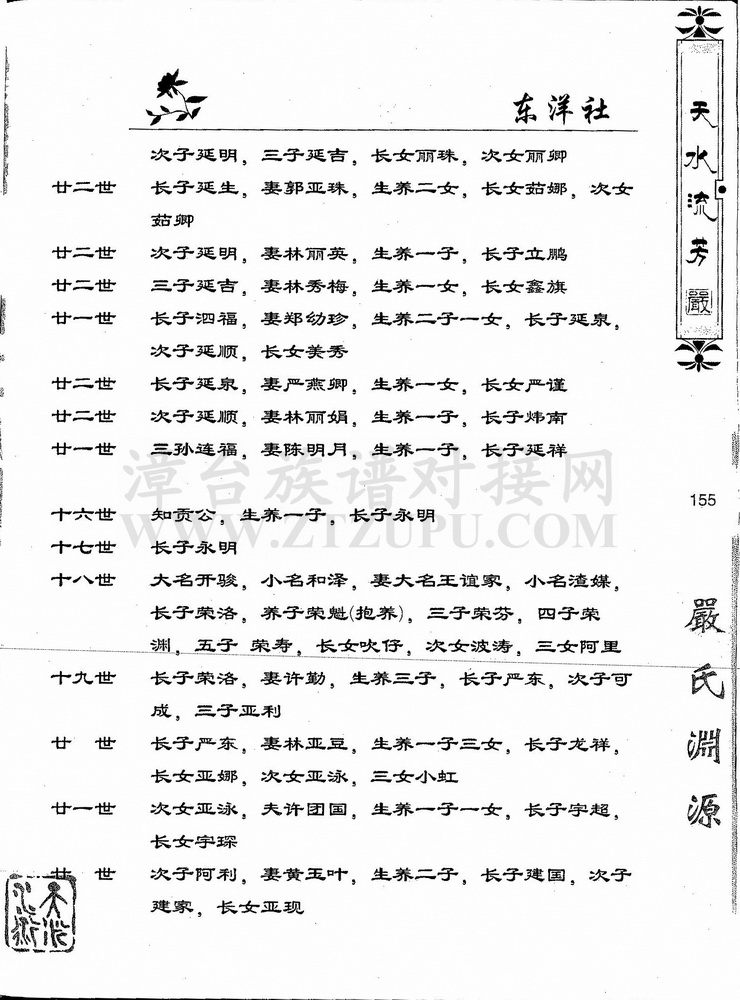 东洋社
次子延明，三子延吉，长女丽珠，次女丽卿
廿二世 长子延生，妻郭亚珠，生养二女，长女茹娜，次女
茹卿
廿二世 次子延明，妻林丽英，生养一子，长子立鹏
廿二世 三子延吉，妻林秀梅，生养一女，长女鑫旗
廿一世 长子泗福，妻郑幼珍，生养二子一女，长子延泉，
次子延顺，长女美秀
廿二世 长子延泉，妻严燕卿，生养一女，长女严谨
廿二世 次子延顺，妻林丽娟，生养一子，长子炜南
廿一世 三孙连福，妻陈明月，生养一子，长子延祥
十六世 知贡公，生养一子，长子永明
十七世 长子永明
十八世 大名开骏，小名和泽，妻大名王谊家，小名渣媒，
长子荣洛，养子荣魁(抱养)，三子荣芬，四子荣
渊，五子 荣寿，长女吹仔，次女波涛，三女阿里
十九世 长子荣洛，妻许勤，生养三子，长子严东，次子可
成，三子亚利
廿 世 长子严东，妻林亚豆，生养一子三女，长子龙祥，
长女亚娜，次女亚泳，三女小虹
廿一世 次女亚泳，夫许团国，生养一子一女，长子宇超，
长女宇琛
廿 世 次子阿利，妻黄玉叶，生养二子，长子建国，次子
建家，长女亚现
天水流芳
嚴
155
嚴氏淵源
漳台族谱对接网
WWW.ZTZUPU.COM